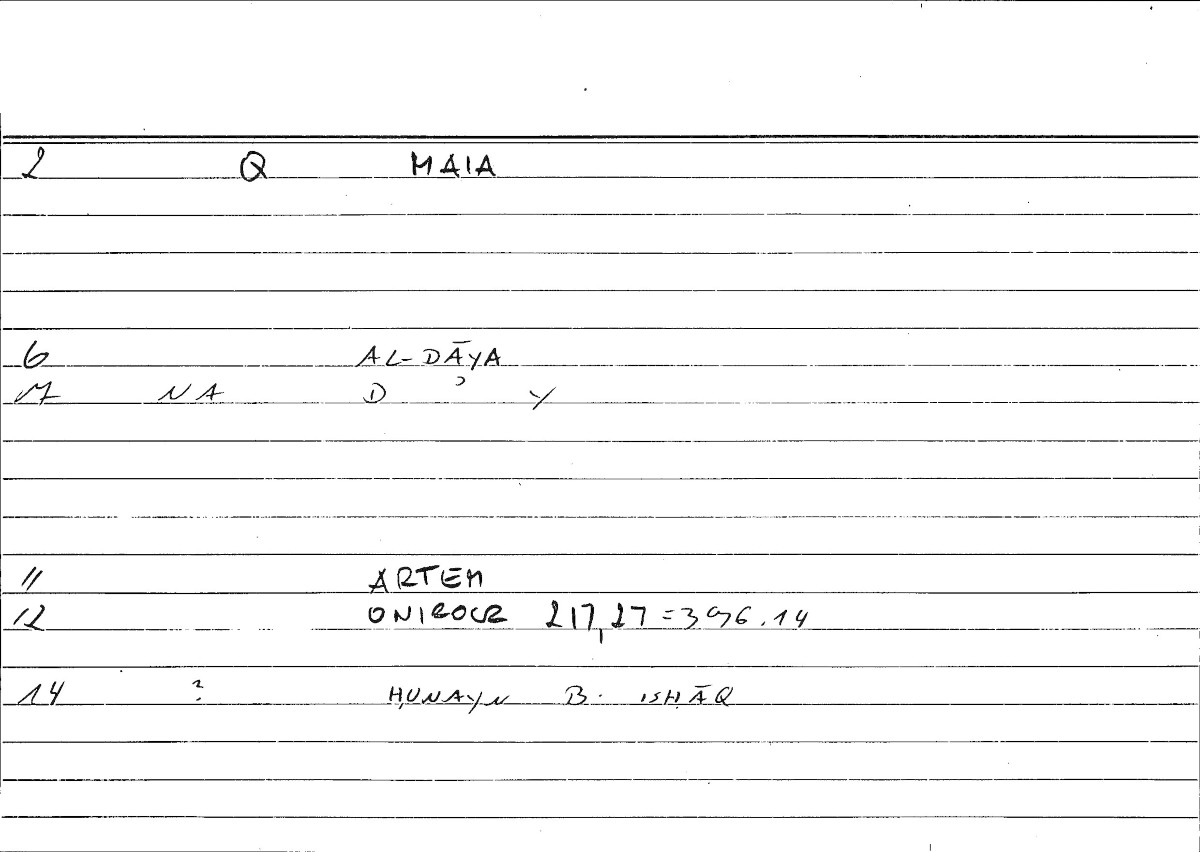 2 Q MAIA
6 AL-DĀYA
NA D ʾ Y
11 ARTEM
12 ONIROCR 217,27=396.14
14 ? ḤUNAYN B. ISḤĀQ